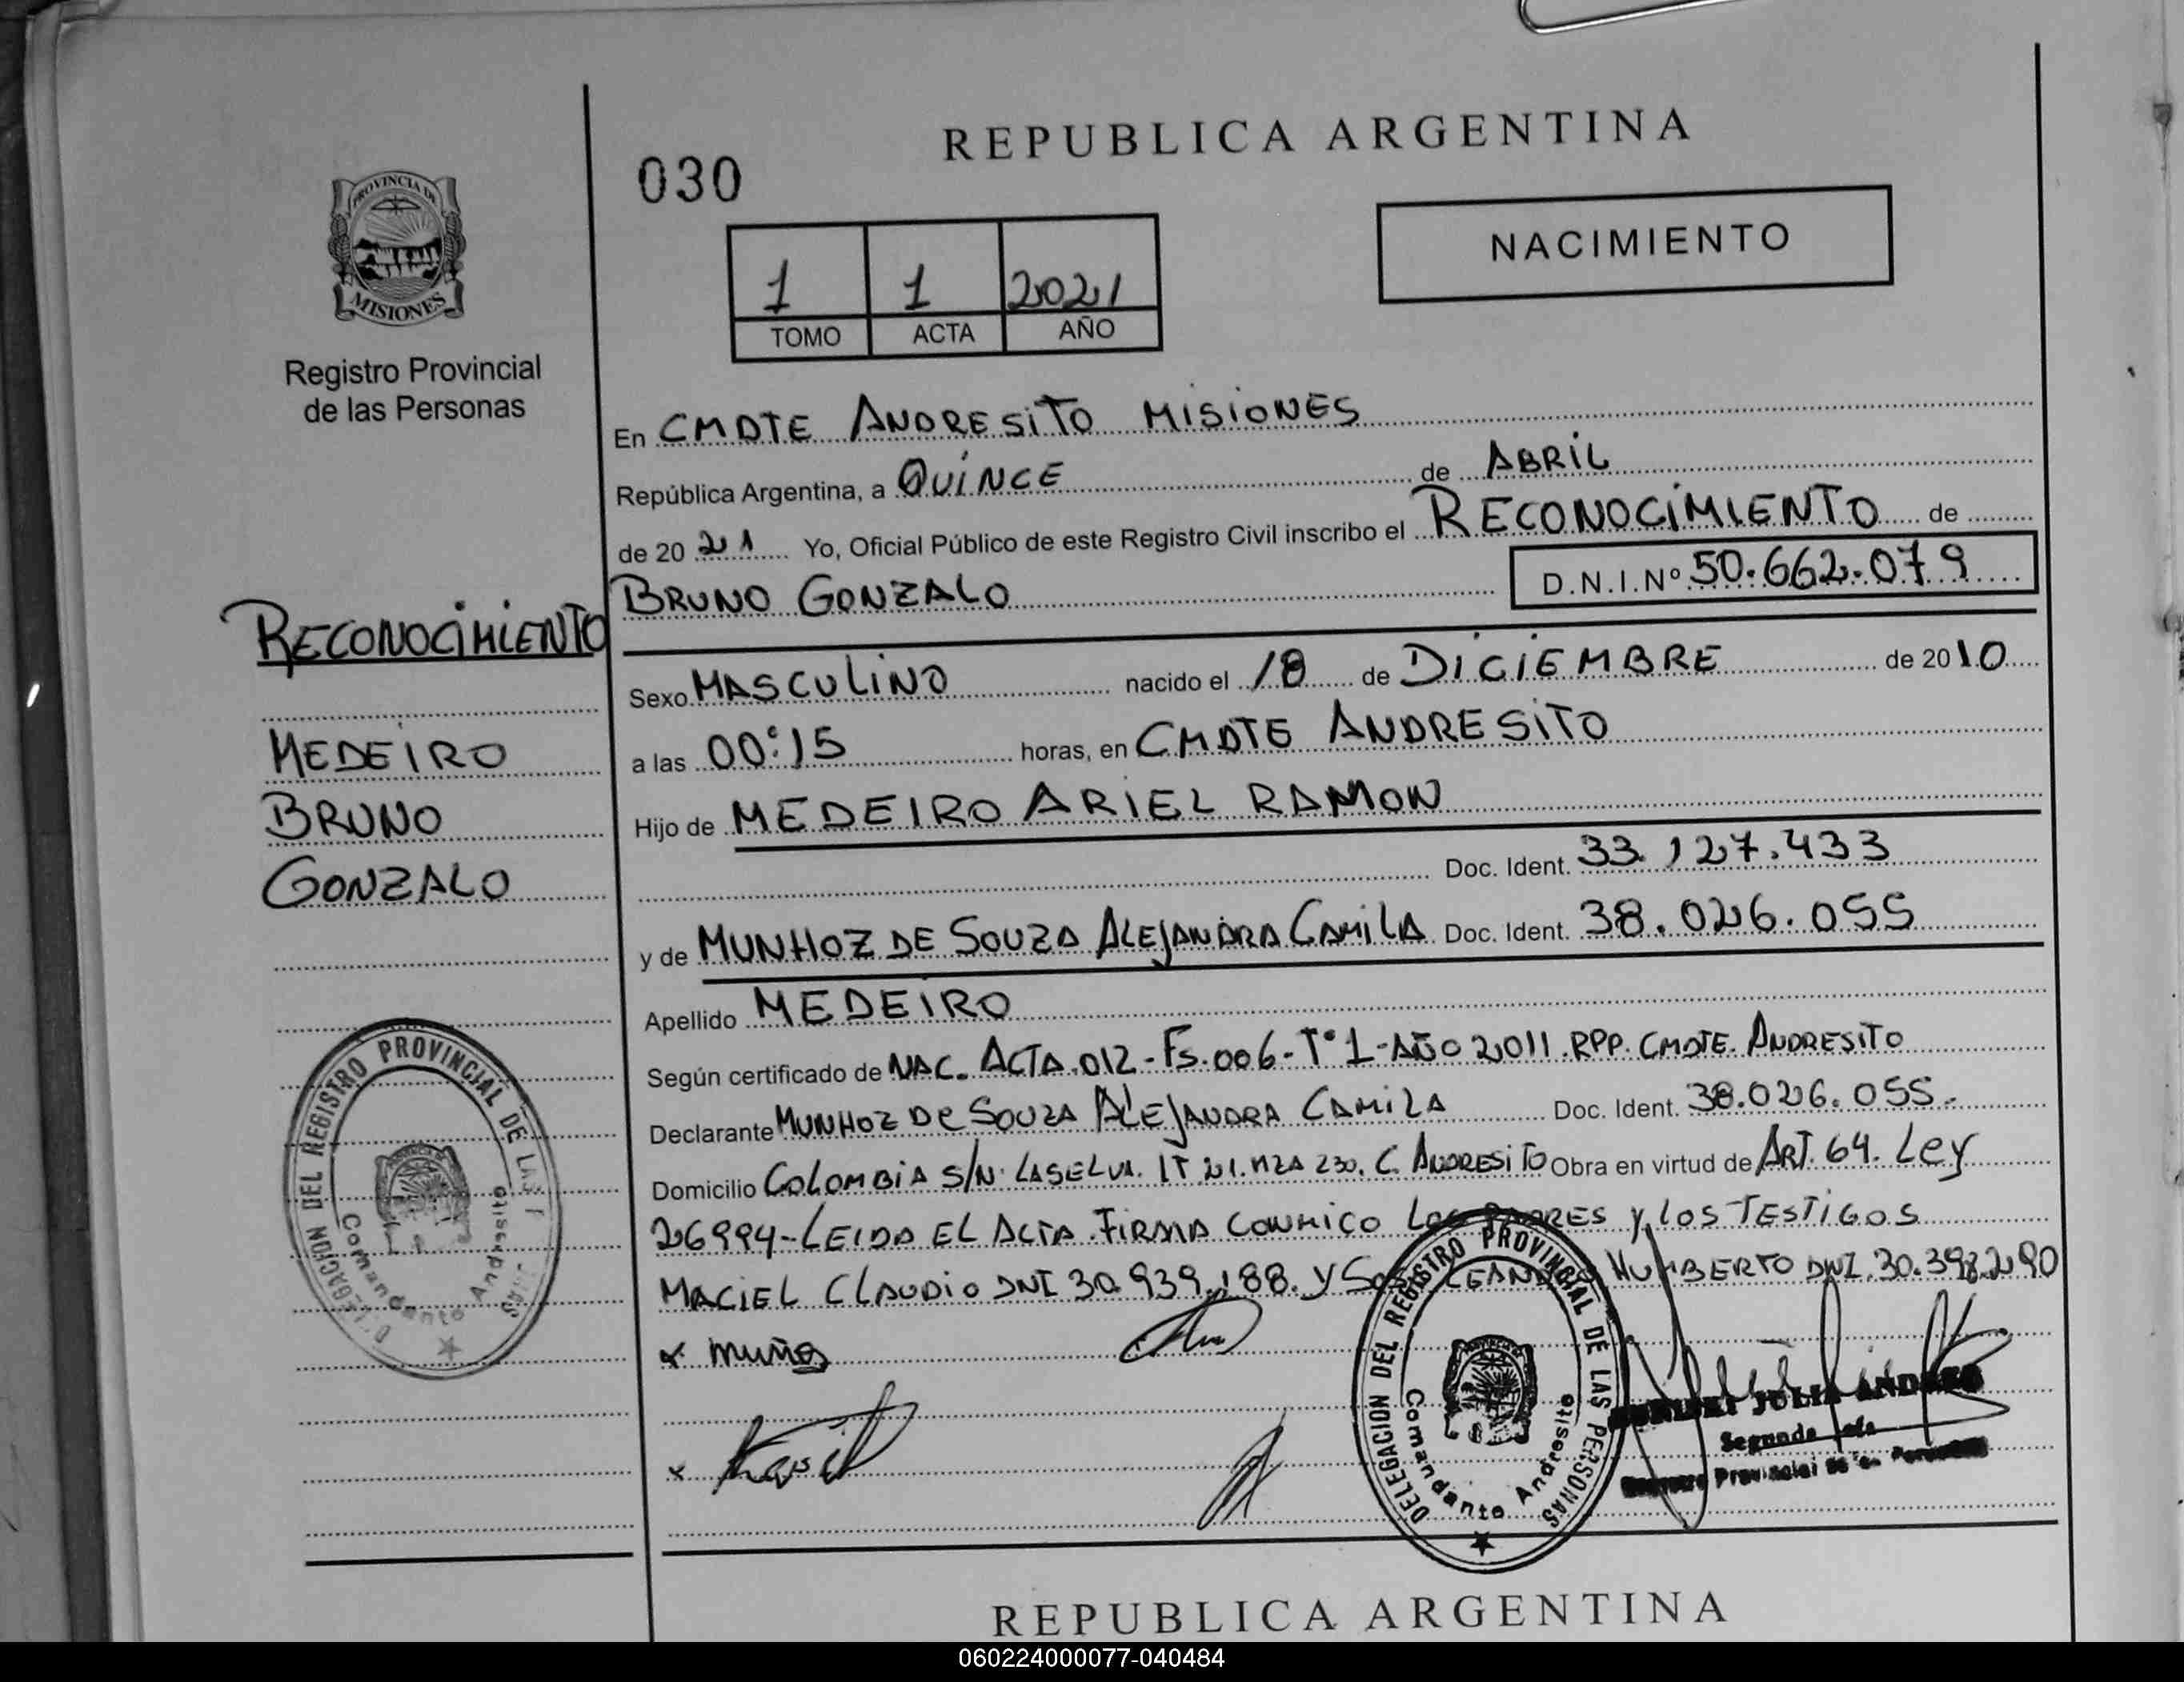 REPUBLICA ARGENTINA
030
NACIMIENTO
1 1 2021
TOMO ACTA AÑO
PROVINCIA DE
MISIONES
Registro Provincial
de las Personas
En CMDTE ANDRESITO MISIONES
República Argentina, a QUINCE de ABRIL
de 2021 Yo, Oficial Público de este Registro Civil inscribo el RECONOCIMIENTO de
BRUNO GONZALO D.N.I.Nº 50.662.079
RECONOCIMIENTO
MEDEIRO
BRUNO
GONZALO
Sexo MASCULINO nacido el 18 de DICIEMBRE de 2010
a las 00:15 horas, en CMDTE ANDRESITO
Hijo de MEDEIRO ARIEL RAMON
Doc. Ident. 33.127.433
y de MUNHOZ DE SOUZA ALEJANDRA CAMILA Doc. Ident. 38.026.055
Apellido MEDEIRO
Según certificado de NAC. ACTA 012-Fs.006-T°1-AÑO 2011.RPP. CMDTE. ANDRESITO
Declarante MUNHOZ De SOUZA ALEJANDRA CAMILA Doc. Ident. 38.026.055.
Domicilio COLOMBIA S/N. LA SELVA. LT 21. MZA 230. C. ANDRESITO Obra en virtud de ART. 64. Ley
26994-LEIDA EL ACTA FIRMA CONMIGO LOS PADRES y LOS TESTIGOS
MACIEL CLAUDIO DNI 30.939.188. y LEANDRO HUMBERTO DNI.30.398.290
x muños
x
DELEGACION DEL REGISTRO PROVINCIAL DE LAS
Comandante Andresito
DELEGACION DEL REGISTRO PROVINCIAL DE LAS PERSONAS
Comandante Andresito
JULIA ANDREA
Segunda Jefa
Registro Provincial de las Personas
REPUBLICA ARGENTINA
060224000077-040484